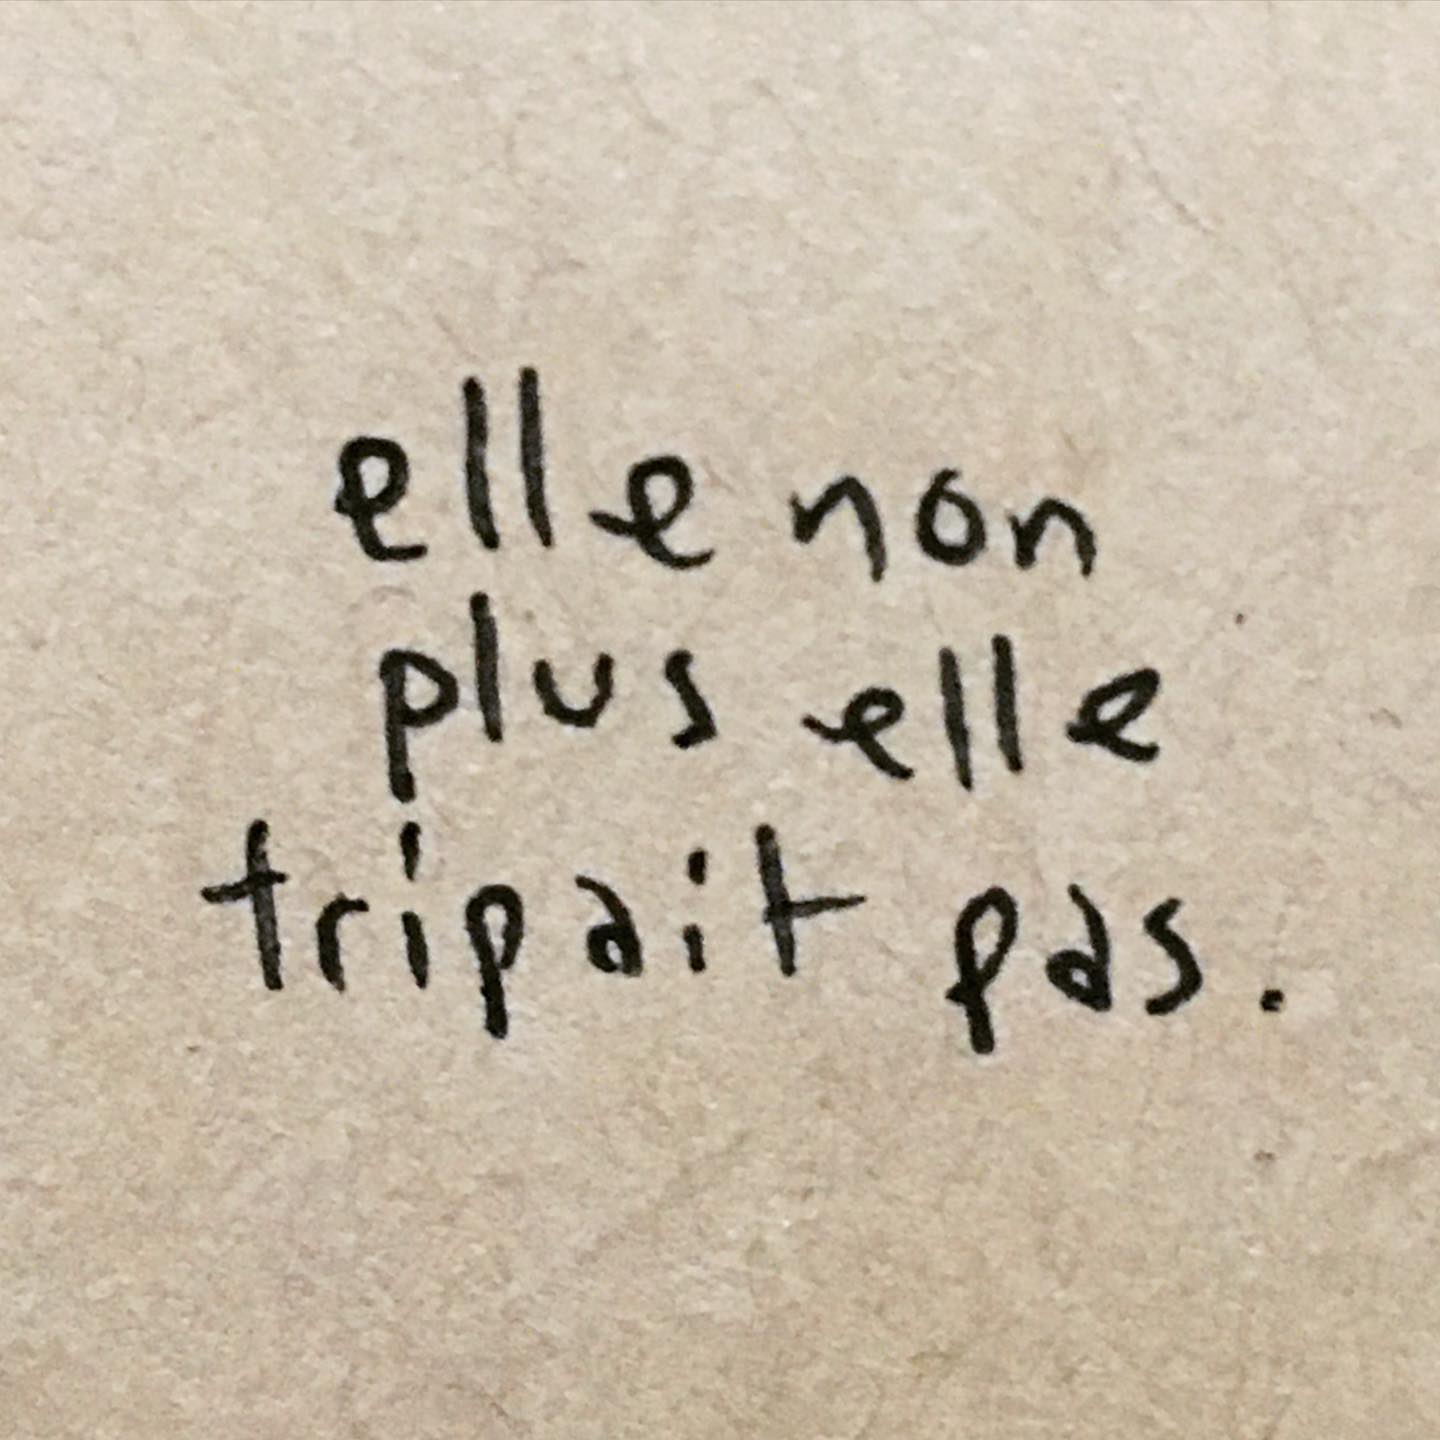 elle non
plus elle
tripait pas.